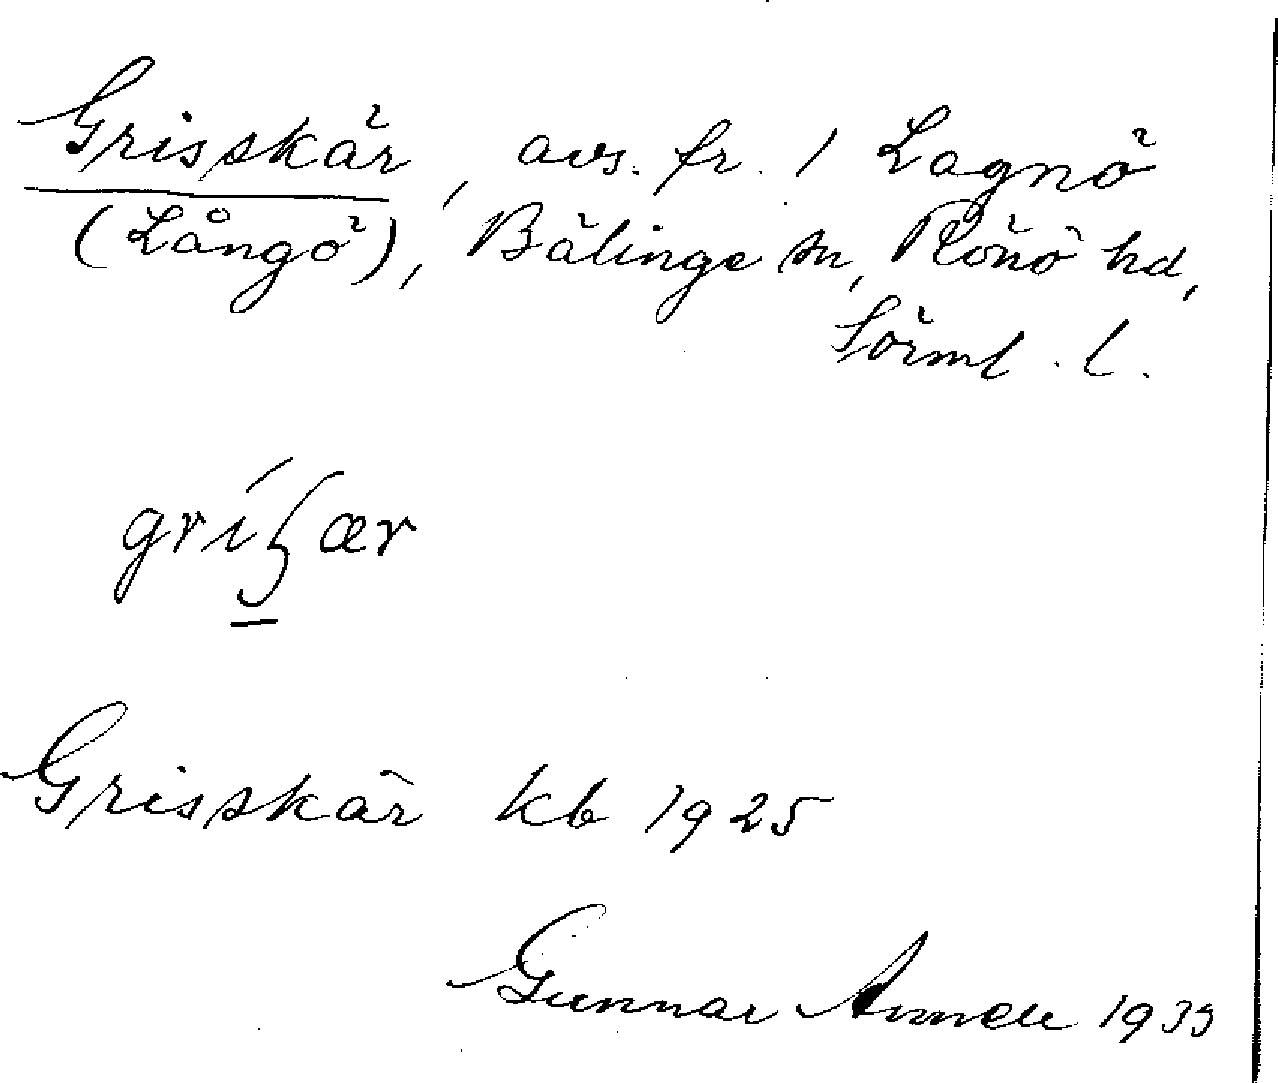 Grisskär, avs. fr. 1 Lagnö
(Långö), Bälinge sn, Rönö hd,
Sörml. l.
Grisskär kb 1925
Gunnar